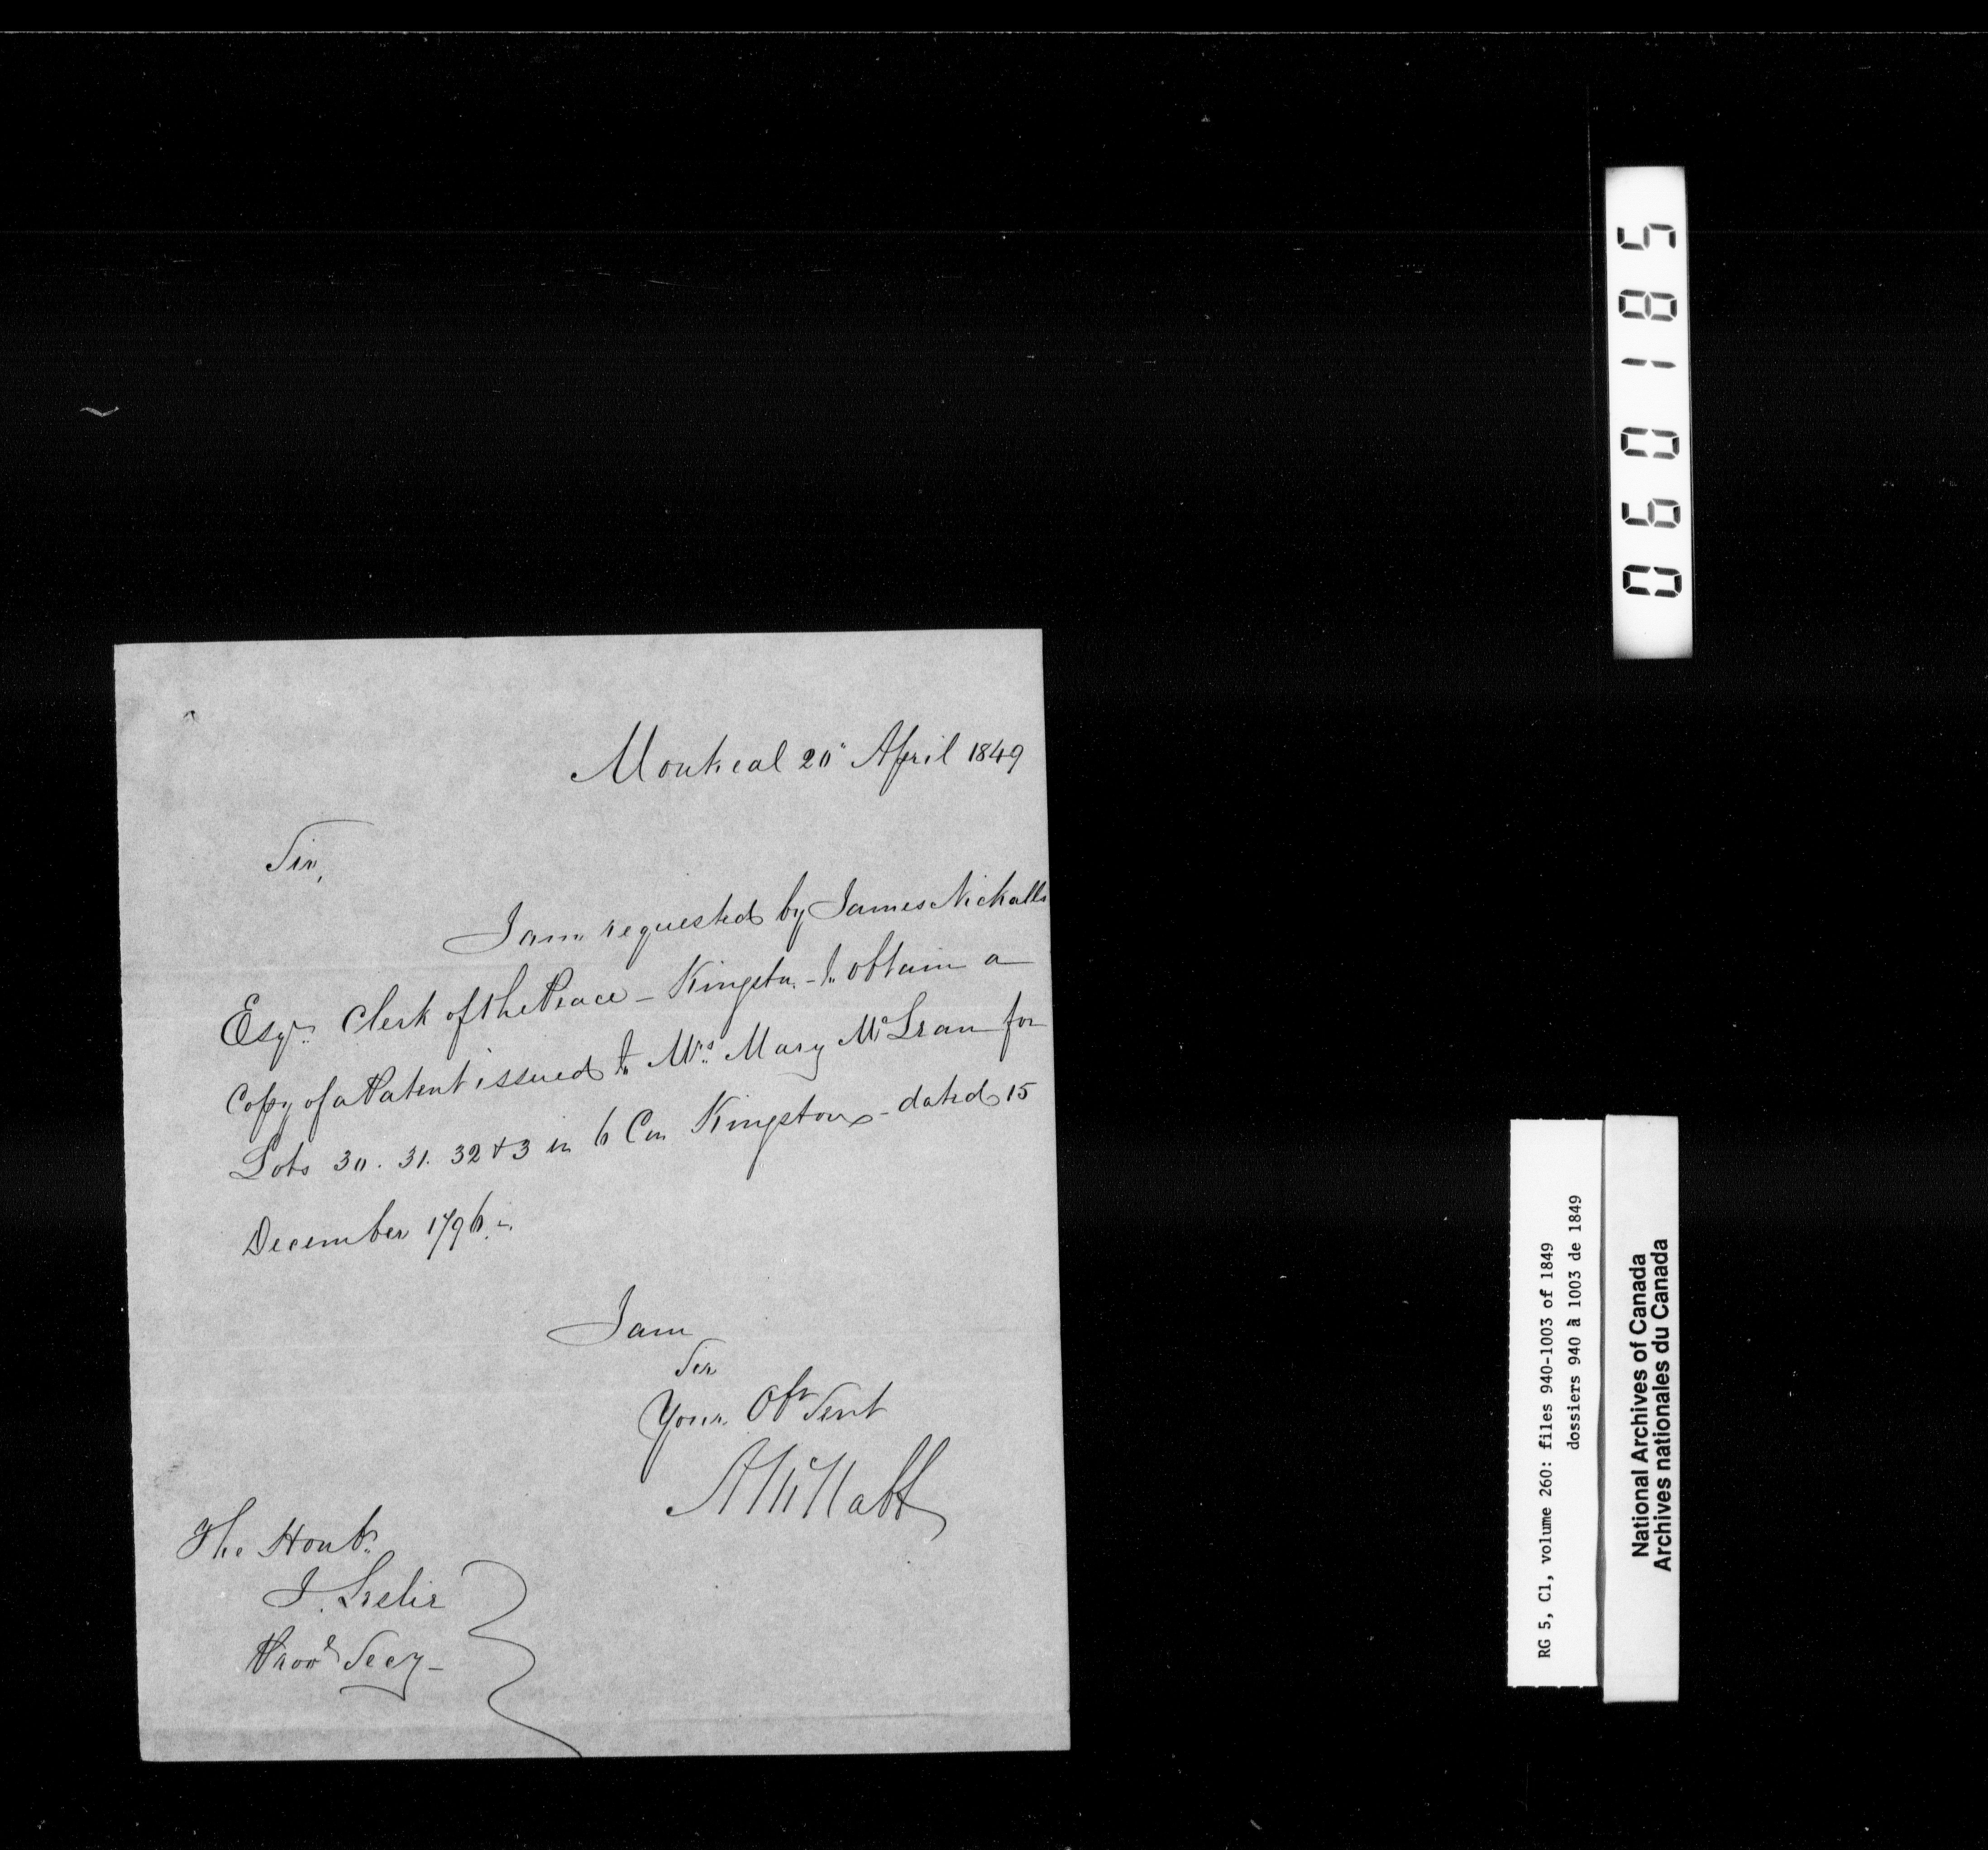 Montreal 20 April 1849
Sir,
I am requested by James Nickalls
Esqr. Clerk of the Peace - Kingston - to obtain a
Copy of a Patent issued to Mrs. Mary McLean for
Lots 30. 31. 32 & 3 in 6 Con Kingston - dated 15
December 1796.
I am
Sir
Your Obt Servt
The Honbl.
J. Leslie
Provl Secy -
060185
RG 5, C1, volume 260: files 940-1003 of 1849
dossiers 940 à 1003 de 1849
National Archives of Canada
Archives nationales du Canada